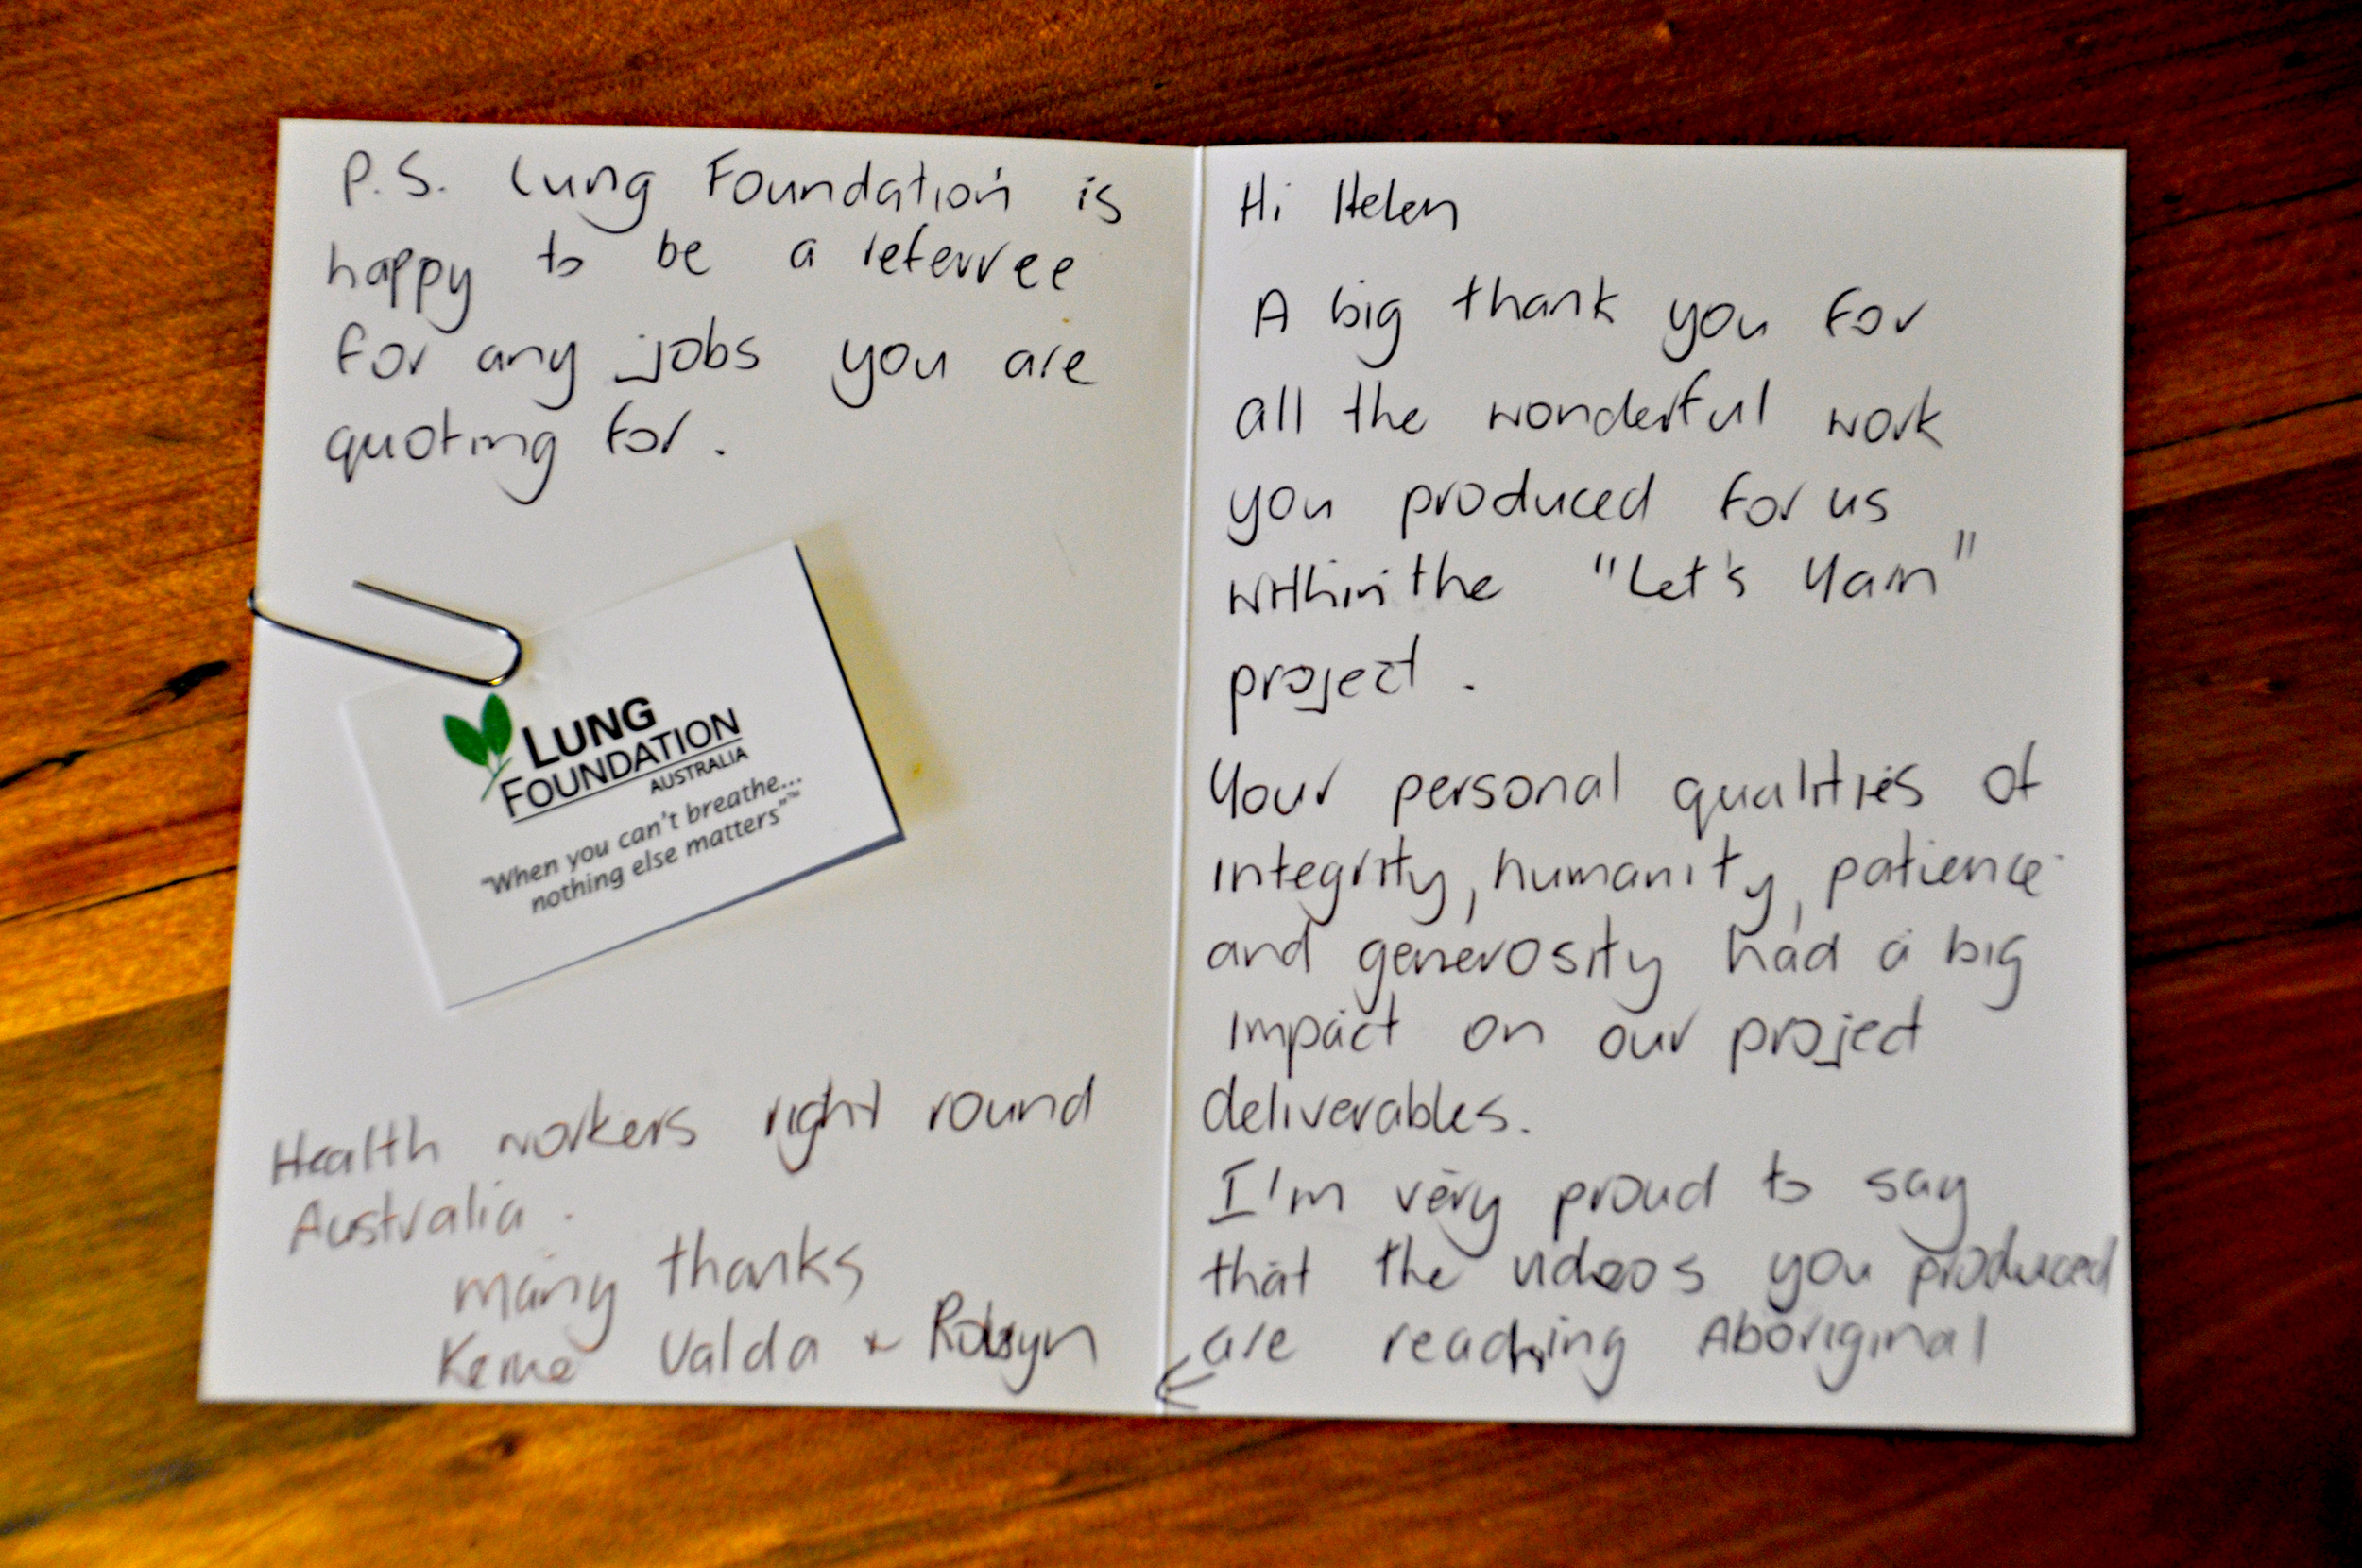 Hi Helen
A big thank you for
all the wonderful work
you produced for us
within the "Let's Yarn"
project.
Your personal qualities of
integrity, humanity, patience
and generosity had a big
impact on our project
deliverables.
I'm very proud to say
that the videos you produced
are reaching Aboriginal
Health workers right round
Australia.
many thanks
Valda + Robyn
P.S. Lung Foundation is
happy to be a referree
for any jobs you are
quoting for.
LUNG
FOUNDATION
AUSTRALIA
"When you can't breathe...
nothing else matters"™